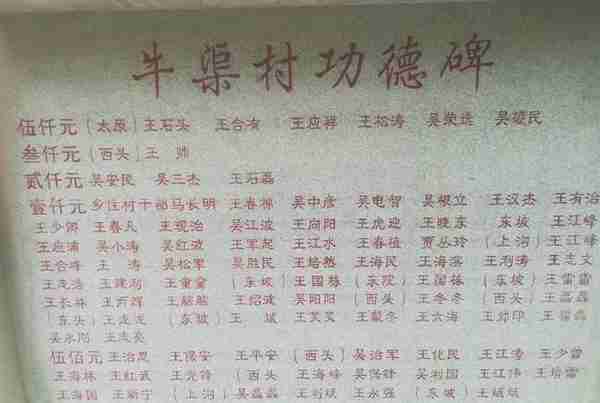 牛渠村功德碑
伍仟元（太原）王石头 王合有 王应祥 王松涛 吴荣选 吴硬民
叁仟元（西头）王帅
贰仟元 吴安民 吴三杰 王石磊
壹仟元 乡住村干部马长明 王春 吴中彦 吴电智 吴根立 王汉杰 王有治
王少 王春凡 王观治 吴江波 王向阳 王虎迎 王晓东 东坡 王江峰
王应浦 吴小涛 吴红波 王军起 王江水 王春植 贾丛玲（上沟）王江峰
王合峰 王涛 吴松军 吴胜民 王培 王海民 王海滨 王利涛 王志文
王龙浩 王建利 王童童（东坡）王国栋（东院）王国栋（东坡）王雷雷
王长林 王西辉 王 王绍波 吴阳阳（西头）王冬冬（西头）王磊磊
（东头）王龙龙（东坡）王斌 王笑笑 王聚冬 王六海 王 王
吴永刚 王志亮
伍佰元 王治恩 王保安 王平安（西头）吴治军 王化民 王江涛 王少雷
王海林 王红武 王光锋（西头 王海峰 吴保锋 吴利国 王江伟 王培雷
王海国 王新宁（上沟）吴磊磊 王利斌 王永强（东坡）王斌斌